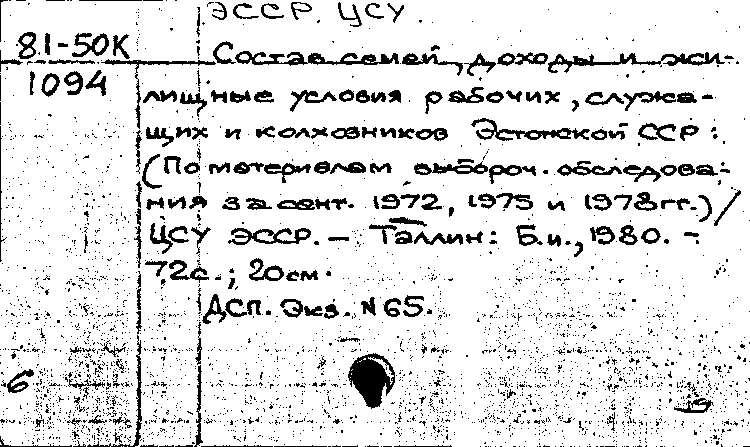 ЭССР. ЦСУ.
81-50К
Состав семей, доходы и жи-
1094
лищные условия рабочих, служа-
щих и колхозников Эстонской ССР:
(По материалам выбороч. обследова-
ния за сент. 1972, 1975 и 1978гг.)/
ЦСУ ЭССР. – Таллин: Б.и., 1980. –
72с.; 20см.
ДСП. Экз. N 65.
6